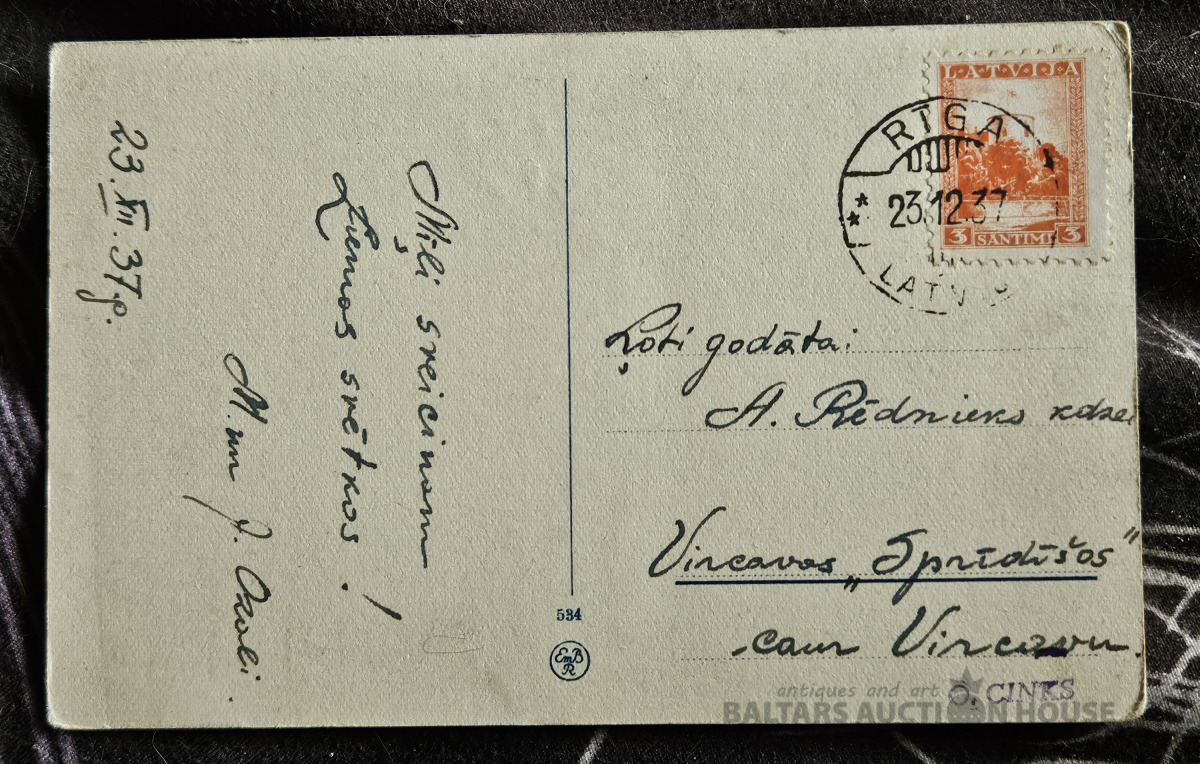 Mīļi sveicinam
Ziemas svētkos!
M. un J. Ozoli.
23.XII.37.g.
534
EmB
R
LATVIJA
3 SANTIMI 3
RĪGA
23.12.37
LATV
Ļoti godāta:
A. Rēdnieks kdze
Vircavas „Sprīdīšos"
caur Vircavu.
O. CINKS
antiques and art
BALTARS AUCTION HOUSE